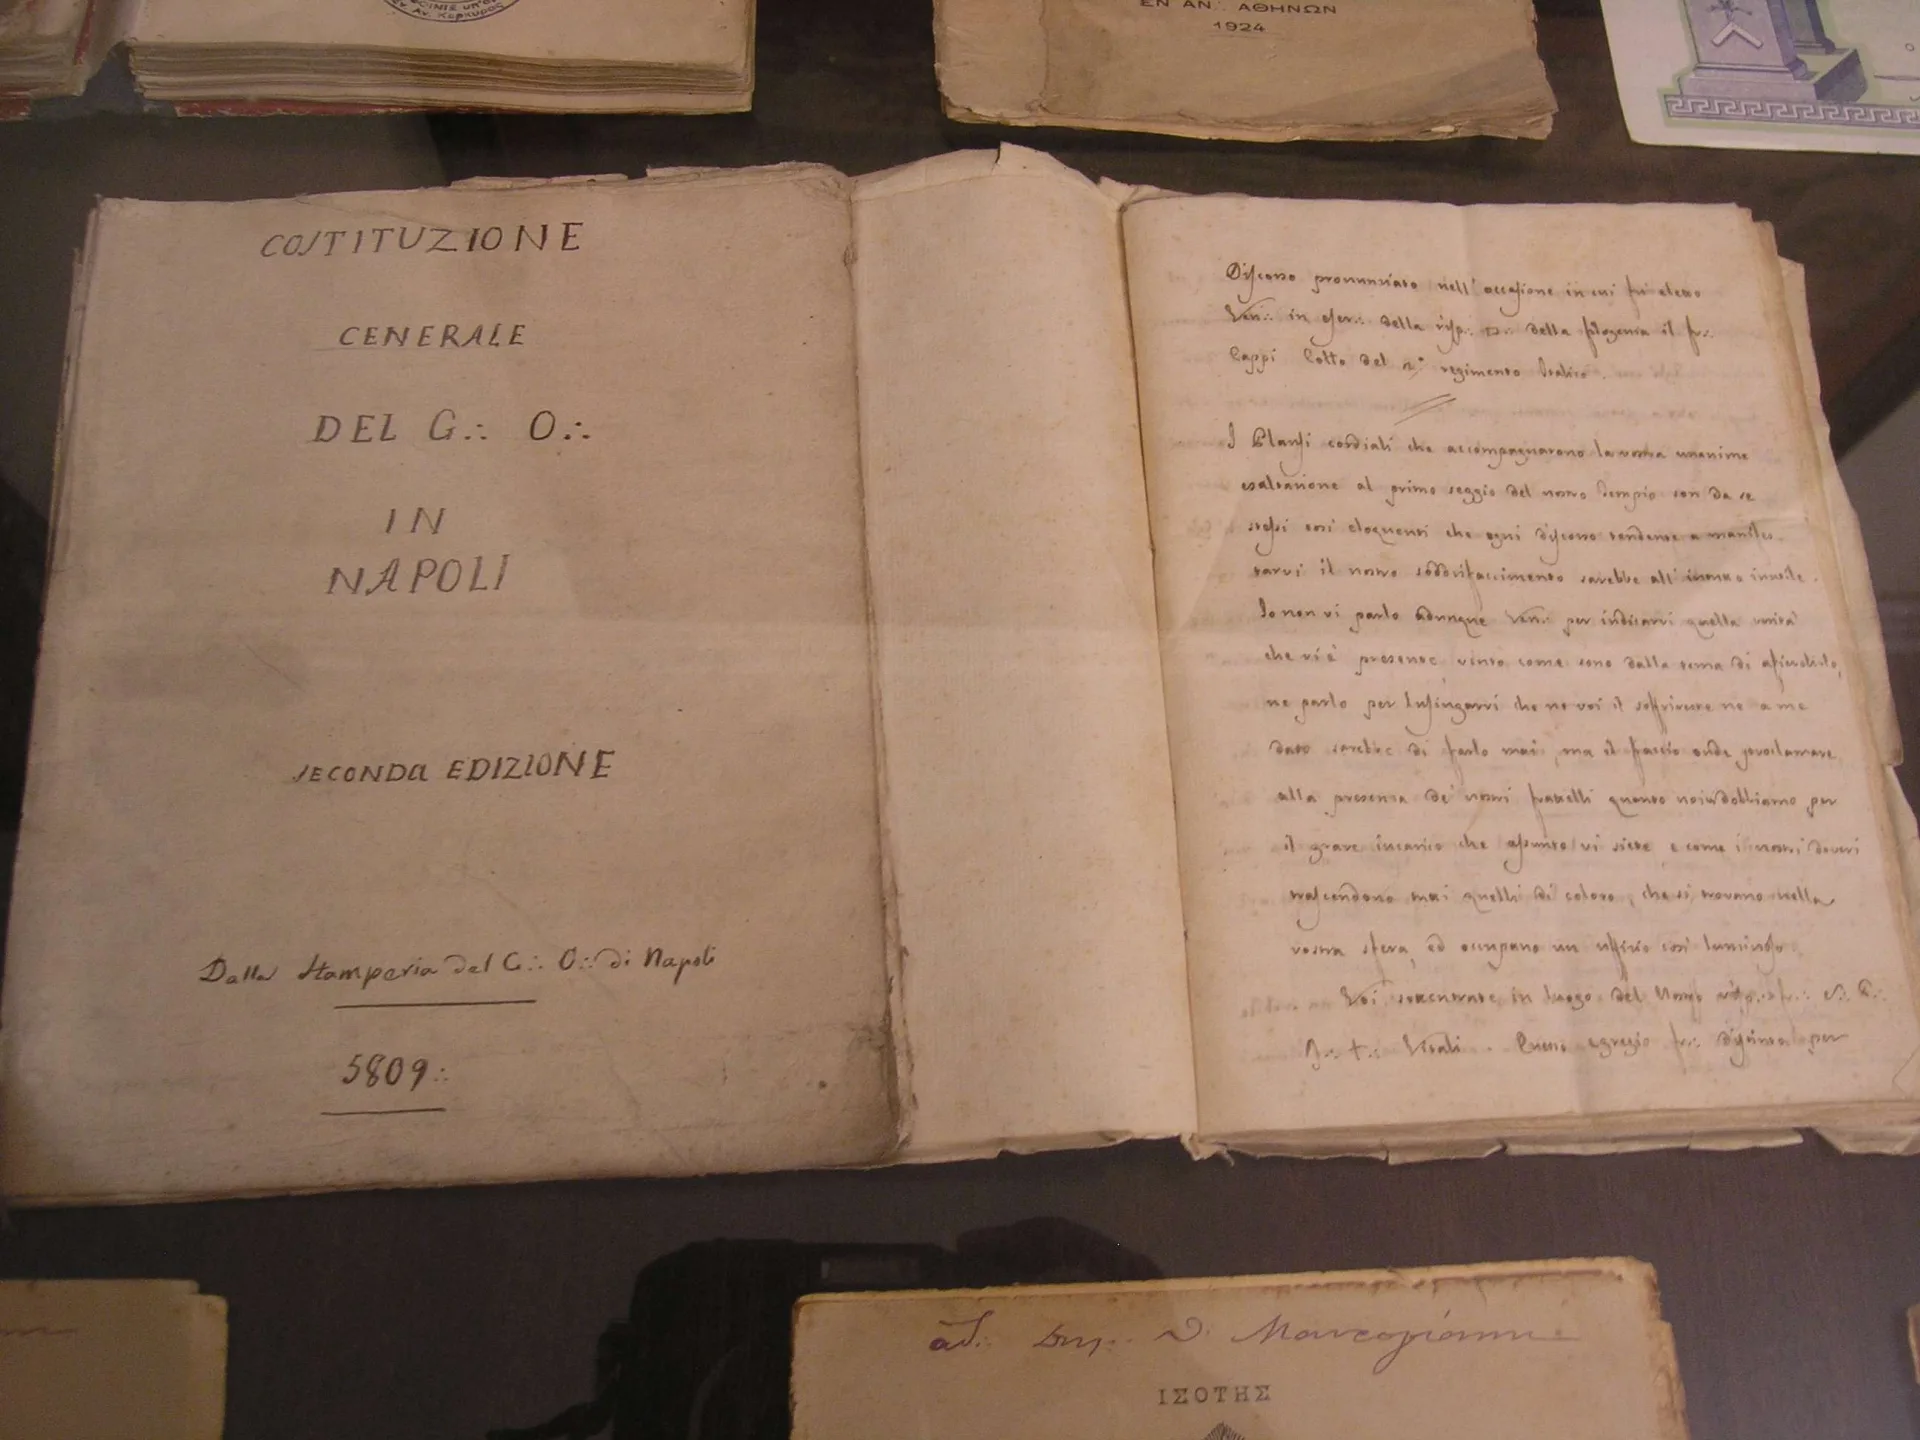 Αν. Κερκύρας
ΕΝ ΑΝ∴ ΑΘΗΝΩΝ
1924
COSTITUZIONE
GENERALE
DEL G∴ O∴
IN
NAPOLI
SECONDA EDIZIONE
Dalla Stamperia del G∴ O∴ di Napoli
5809∴
Discorso pronunziato nell' occasione in cui fu eletto
Ven∴ in eser∴ della risp∴ della filogenia il fr∴
Cappi Lotto del 2° regimento Italico.
I Plausi cordiali che accompagnarono la vostra unanime
esaltazione al primo seggio del nostro Tempio son da se
stessi così eloquenti che ogni discorso tendente a manifes
tarvi il nostro soddisfaccimento sarebbe all' intutto inutile.
Io non vi parlo adunque Ven∴ per indicarvi quella verità
che vi è presente, vinto come sono dalla tema di
ne parlo per lusingarvi che ne voi il soffrireste ne a me
dato sarebbe di farlo mai, ma il faccio onde proclamare
alla presenza de' nostri fratelli quanto noi vi dobbiamo per
il grave incarico che assunto vi siete e come i vostri doveri
trascendono mai quelli di coloro, che si trovano nella
vostra sfera, ed occupano un uffizio così luminoso.
Voi sottentrate in luogo del fr∴
Vitali. Questo egregio fr∴ per
ad∴ D. Μαρκογιάννη
ΙΣΟΤΗΣ